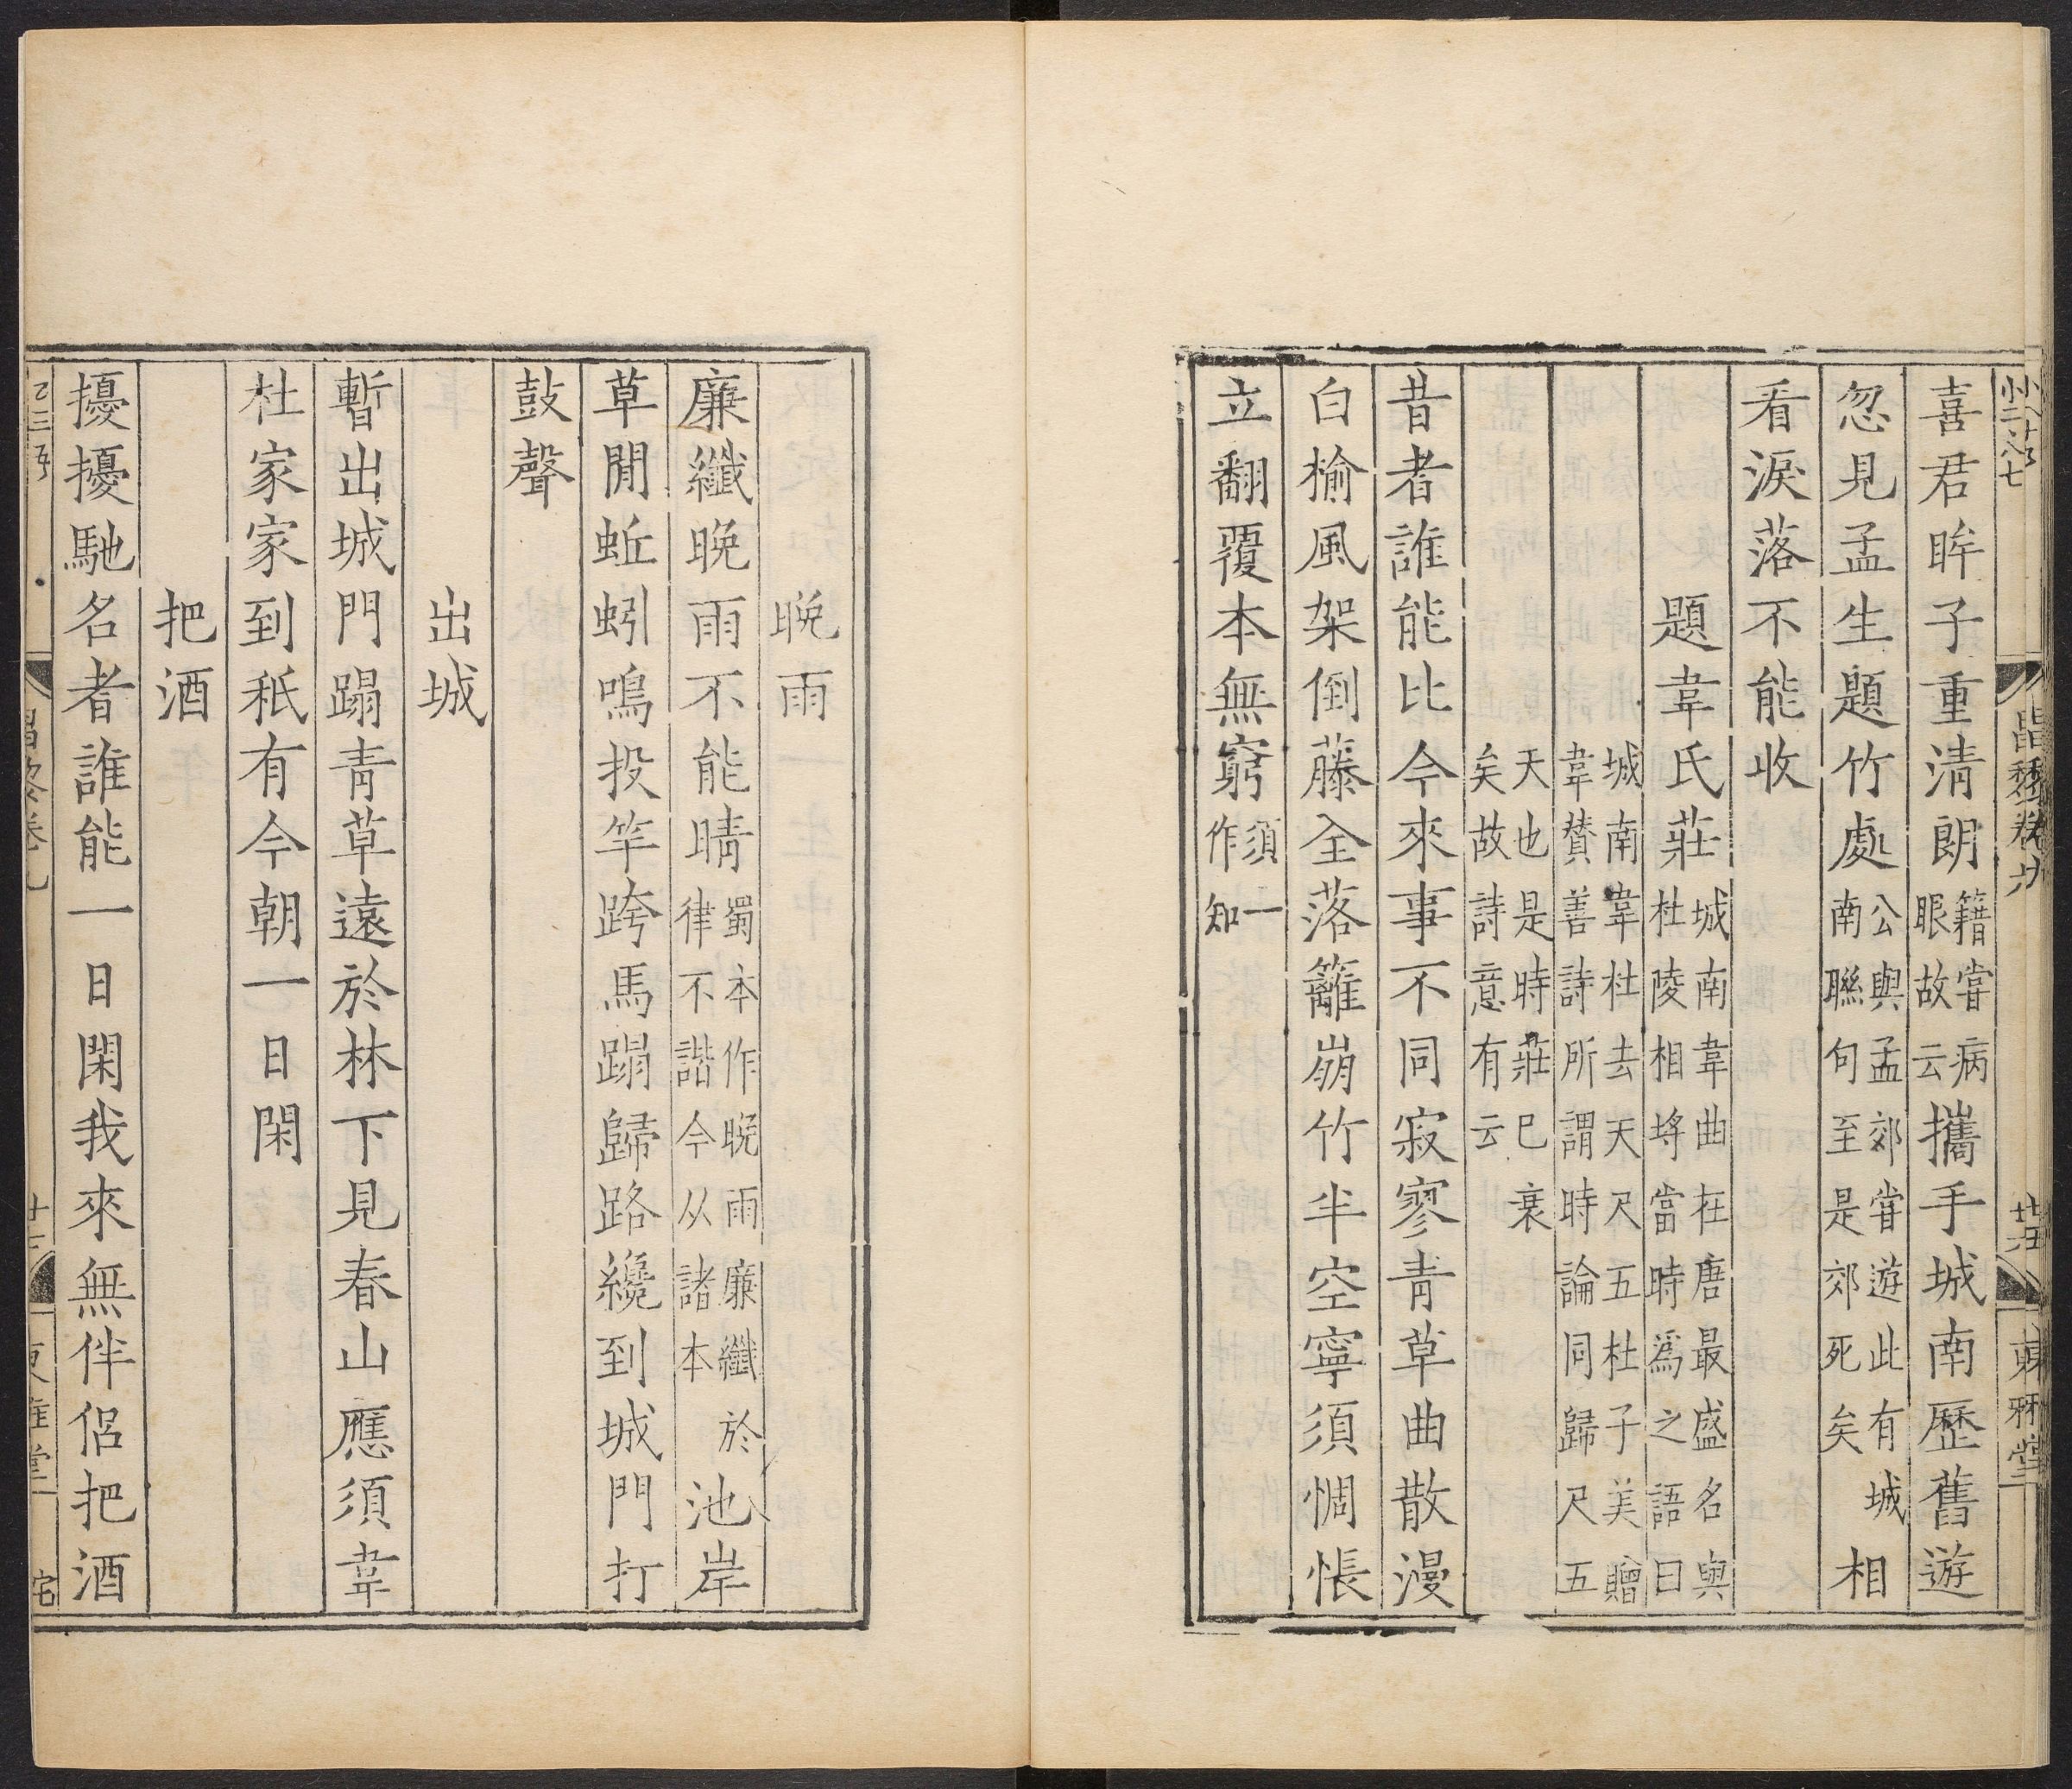 昌黎卷九
廿五
東雅堂
喜君眸子重清朗籍嘗病眼故云攜手城南歷舊遊
忽見孟生題竹處公與孟郊嘗遊此有城南聯句至是郊死矣相
看淚落不能收
題韋氏莊城南韋曲在唐最盛名與杜陵相埒當時爲之語曰
城南韋杜去天尺五杜子美贈韋贊善詩所謂時論同歸尺五
天也是時莊已衰矣故詩意有云
昔者誰能比今來事不同寂寥青草曲散漫
白榆風架倒藤全落籬崩竹半空寧須惆悵
立翻覆本無窮須一作知
晚雨
廉纖晚雨不能晴蜀本作晚雨廉纖於律不諧今从諸本池岸
草閒蚯蚓鳴投竿跨馬蹋歸路纔到城門打
鼓聲
出城
暫出城門蹋青草遠於林下見春山應須韋
杜家家到秖有今朝一日閑
把酒
擾擾馳名者誰能一日閑我來無伴侶把酒